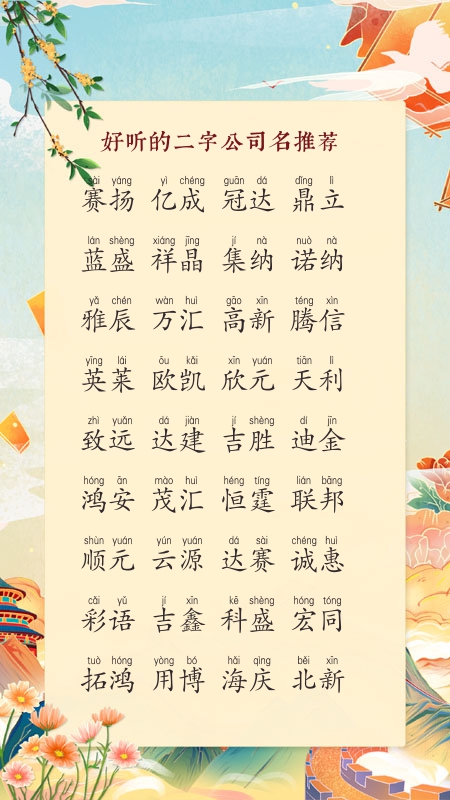 好听的二字公司名推荐
sài yáng yì chéng guān dá dǐng lì
赛扬 亿成 冠达 鼎立
lán shèng xiáng jīng jí nà nuò nà
蓝盛 祥晶 集纳 诺纳
yǎ chén wàn huì gāo xīn téng xìn
雅辰 万汇 高新 腾信
yīng lái ōu kǎi xīn yuán tiān lì
英莱 欧凯 欣元 天利
zhì yuǎn dá jiàn jí shèng dí jīn
致远 达建 吉胜 迪金
hóng ān mào huì héng tíng lián bāng
鸿安 茂汇 恒霆 联邦
shùn yuán yún yuán dá sài chéng huì
顺元 云源 达赛 诚惠
cǎi yǔ jí xīn kē shèng hóng tóng
彩语 吉鑫 科盛 宏同
tuò hóng yòng bó hǎi qìng běi xīn
拓鸿 用博 海庆 北新